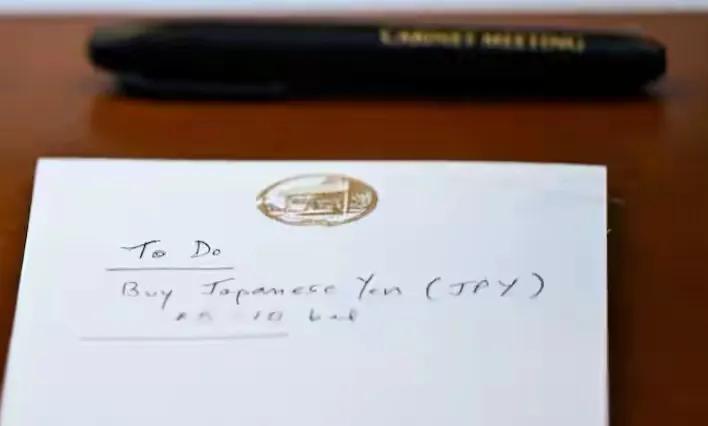 CABINET MEETING
To Do
Buy Japanese Yen (JPY)